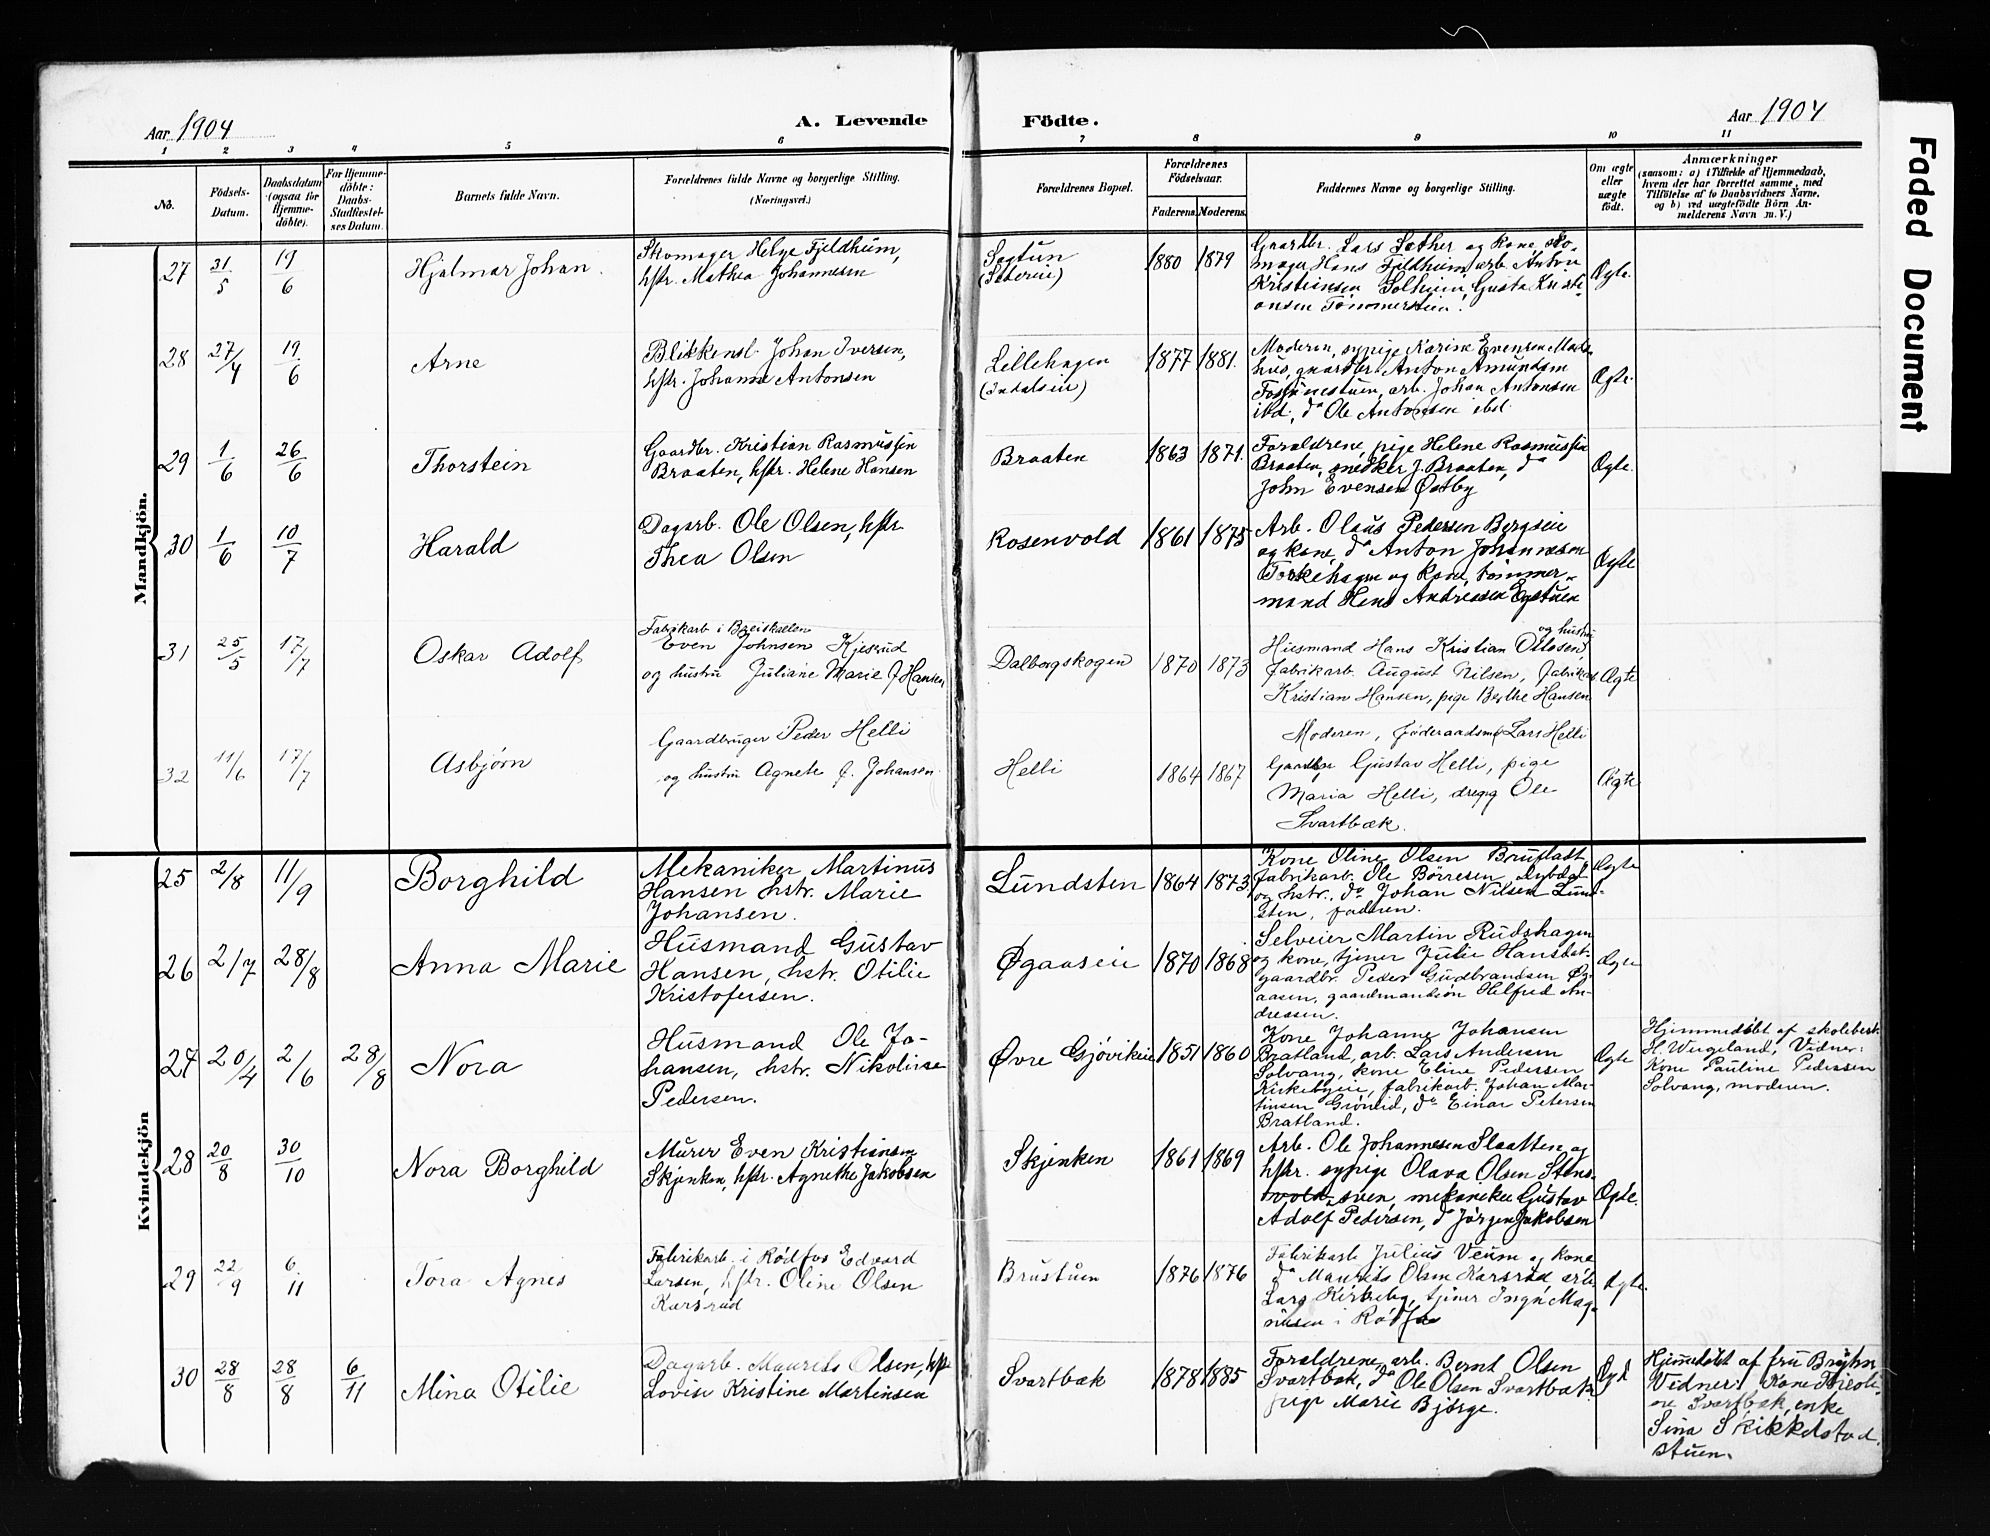 Aar 1904
A. Levende Födte.
Aar 1904
Faded Document
1 2 3 4 5 6 7 8 9 10 11
No.
Födsels-Datum.
Daabsdatum (ogsaa for Hjemmedöbte).
For Hjemmedöbte: Daabs-Stadfæstelses Datum.
Barnets fulde Navn.
Forældrenes fulde Navne og borgerlige Stilling. (Næringsvei.)
Forældrenes Bopæl.
Forældrenes Födselsaar.
Faderens. Moderens.
Faddernes Navne og borgerlige Stilling.
Om ægte eller uægte födt.
Anmærkninger
(saasom: a) i Tilfælde af Hjemmedaab, hvem der har forrettet samme, med Tilföielse af to Daabsvidners Navne, og b) ved uægtefödte Börn Anmelderens Navn m. V.)
Mandkjön.
27 31/5 19/6 Hjalmar Johan.
Skomager Helge Fjeldheim,
hstr. Mathea Johannesen
Sagtun
1880 1879
Gaardbr. Lars Sæther og kone, sko-
mager Hans Fjeldheim, arb. Anton
Kristiansen Solheim, Gusta Kristi-
ansen Tømmersteien.
Ægte
28 27/4 19/6 Arne
Blikkensl. Johan Iversen,
hstr. Johanne Antonsen
Lillehagen
1877 1881.
Moderen, sypige Karine Evensen
gaardbr. Anton Amundsen
arb. Johan Antonsen
ibd., do Ole Antonsen ibd.
Ægte.
29 1/6 26/6 Thorstein
Gaardbr. Kristian Rasmussen
Braaten, hstr. Helene Hansen
Braaten
1863 1871.
Forældrene, pige Helene Rasmussen
Braaten, snedker J. Braaten, do
John Evensen Østby
Ægte.
30 1/6 10/7 Harald
Dagarb. Ole Olsen, hstr.
Thea Olsen
Rosenvold
1861 1875
Arb. Olaus Pedersen Bergseie
og kone, do Anton Johannesen
og kone, tømmer-
mand Hans Andreasen
Ægte
31 25/5 17/7 Oskar Adolf
Fabrikarb i Breiskallen
Even Johnsen Kjesrud
og hustru Juliane Marie f Hansen
Dalborgskogen
1870 1873
og hustru
Husmand Hans Kristian Ottosen,
fabrikarb. August Nilsen, fabrikarb
Kristian Hansen, pige Berthe Hansen
Ægte
32 11/6 17/7 Asbjørn
Gaardbruger Peder Helli
og hustru Agnete f. Johansen.
Helli
1864 1867
Moderen, føderaadsm Lars Helli
Gaardbr Gustav Helli, pige
Maria Helli, dreng Ole
Svartbæk.
Ægte
Kvindekjön
25 2/8 11/9 Borghild
Mekaniker Martinus
Hansen hstr. Marie
Johansen.
Lundsten
1864 1873
Kone Oline Olsen Brufladt
fabrikarb. Ole Børresen
og hstr., do Johan Nilsen Lund-
sten, faderen.
Ægte
26 2/7 28/8 Anna Marie
Husmand Gustav
Hansen, hstr. Otilie
Kristofersen.
Øgaaseie
1870 1868
Selveier Martin Rudshagen
og kone, tjener Julie
gaardbr. Peder Gudbrandsen Øg-
aasen, gaardmandsøn Helfred An-
dresen.
Ægte
27 20/4 2/6 28/8 Nora
Husmand Ole Jo-
hansen, hstr. Nikoline
Pedersen.
Øvre Gjøvikeie
1851 1860
Kone Johanne Johansen
Bratland, arb. Lars Andersen
Solvang, kone Eline Pedersen
Kirkebyeie, fabrikarb. Johan Mar-
tinsen Grønlid, do Einar Petersen
Bratland.
Ægte
Hjemmedøbt af skolebest.
H. Wergeland, Vidner:
Kone Pauline Pedersen
Solvang, moderen.
28 20/8 30/10 Nora Borghild
Murer Even Kristiansen
Skjenken, hstr. Agnethe Jakobsen
Skjenken
1861 1869
Arb. Ole Johannesen Slaatten og
hstr. sypige Olava Olsen Stens-
vold, sven, mekaniker Gustav
Adolf Pedersen, do Jørgen Jakobsen
Ægte.
29 22/9 6/11 Tora Agnes
Fabrikarb. i Rødfos Edvard
Larsen, hstr. Oline Olsen
Karsrud
Brustuen
1876 1876
Fabrikarb Julius Veum og kone
do Maurits Olsen Karsrud, arb.
Lars Kirkeby, tjener Inga Mag-
nusen i Rødfos
Ægte.
30 28/8 28/8 6/11 Mina Otilie
Dagarb. Maurits Olsen, hstr
Lovise Kristine Martinsen
Svartbæk
1878 1885
Forældrene, arb. Bernt Olsen
Svartbæk, do Ole Olsen Svartbæk
pige Marie Bjørge.
Hjemmedøbt af fru Bruhn
Vidner: Kone
Svartbæk, enke
Sina Skikkelstad-
stuen.